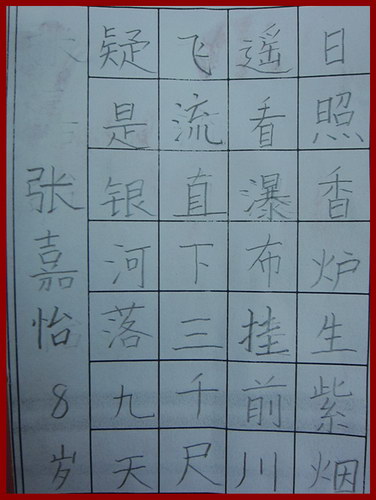 日照香炉生紫烟
遥看瀑布挂前川
飞流直下三千尺
疑是银河落九天
张嘉怡8岁